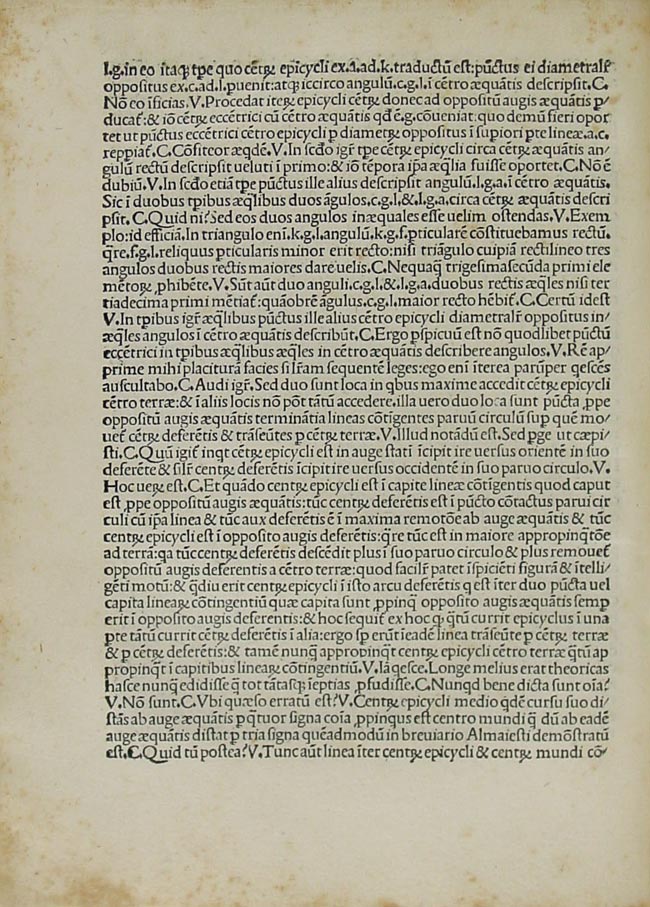 l.g. in eo itaqꝫ tp̄e quo cētꝝ epicycli ex.a.ad.k.traductū est:pūctus ei diametralr̄
oppositus ex.c.ad.l.puenit:atqꝫ iccirco angulū.c.g.l.ī cētro æquātis descripsit. C.
Nō eo īficias.V.Procedat iteꝝ epicycli cētꝝ donec ad oppositū augis æquātis p/
ducat̄:& iō cētꝝ eccētrici cū cētro æquātis qd̄ ē.g.cōueniat:quo demū fieri opor
tet ut pūctus eccētrici cētro epicycli p diametꝝ oppositus ī supiori pte lineæ.a.c.
reppiat̄. C.Cōsiteor æqde.V.In scdo igr̄ tp̄e cētꝝ epicycli circa cētꝝ æquātis an/
gulū rectū descripsit ueluti ī primo:& iō tēpora ip̄a æq̄lia fuisse oportet. C.Nō ē
dubiū.V.In scdo etiā tp̄e pūctus ille alius descripsit angulū.l.g.a.ī cētro æquātis.
Sic ī duobus tpibus æq̄libus duos āgulos.c.g.l.&.l.g.a.circa cētꝝ æquātis descri
psit. C.Quid ni? Sed eos duos angulos inæquales esse uelim ostendas.V.Exem
plo:id efficiā.In triangulo enī.k.g.l.angulū.k.g.f.pticularē cōstituebamus rectū.
q̄re.f.g.l.reliquus pticularis minor erit recto:nisi triāgulo cuipiā rectilineo tres
angulos duobus rectis maiores dare uelis. C.Nequaq̄ trigesimasecūda primi ele
mētoꝝ phibēte. V.Sūt aūt duo anguli.c.g.l.&.l.g.a.duobus rectis æq̄les nisi ter
tiadecima primi mētiat̄:quāobrē āgulus.c.g.l.maior recto hēbit̄. C.Certū id est
V.In tpibus igr̄ æq̄libus pūctus ille alius cētro epicycli diametralr̄ oppositus in/
æq̄les angulos ī cētro æquātis describūt. C.Ergo pspicuū est nō quodlibet pūctū
eccētrici in tpibus æq̄libus æq̄les in cētro æquātis describere angulos. V.Rē ap/
prime mihi placiturā facies si lr̄am sequentē leges:ego enī īterea parūper q̄escēs
auscultabo. C. Audi igr̄. Sed duo sunt loca in qbus maxime accedit cētꝝ epicycli
cētro terræ:& ī aliis locis nō pōt tātū accedere.illa uero duo loca sunt pūcta ,ppe
oppositū augis æquātis terminātia lineas cōtigentes paruū circulū sup quē mo/
uet̄ cētꝝ deferētis & trāseūtes p cētꝝ terræ. V.Illud notādū est. Sed pge ut cæpi/
sti. C.Quū igit̄ inqt cētꝝ epicycli est in auge statī īcipit ire uersus orientē in suo
deferēte & silr̄ centꝝ deferētis īcipit ire uersus occidentē in suo paruo circulo. V.
Hoc ueꝝ est. C. Et quādo centꝝ epicycli est ī capite lineæ cōtigentis quod caput
est ,ppe oppositū augis æquātis:tūc centꝝ deferētis est ī pūcto cōtactus parui cir
culi cū ip̄a linea & tūc aux deferētis ē ī maxima remotōe ab auge æquātis & tūc
centꝝ epicycli est ī opposito augis deferētis:q̄re tūc est in maiore appropinq̄tōe
ad terrā:qa tūc centꝝ deferētis descēdit plus ī suo paruo circulo & plus remouet̄
oppositū augis deferentis a cētro terræ:quod facilr̄ patet īspiciēti figurā & ītelli/
gēti motū:& q̄diu erit centꝝ epicycli ī isto arcu deferētis q est īter duo pūcta uel
capita lineaꝝ cōtingentiū quæ capita sunt ,ppinq̄ opposito augis æquātis semp
erit ī opposito augis deferentis:& hoc sequit̄ ex hoc qꝫ q̄tū currit epicyclus ī una
pte tātū currit cētꝝ deferētis ī alia:ergo sp erūt ī eadē linea trāseūte p cētꝝ terræ
& p cētꝝ deferētis:& tamē nunq̄ appropinqt centꝝ epicycli cētro terræ q̄tū ap
propinqt ī capitibus lineaꝝ cōtingentiū. V. Iā qesce. Longe melius erat theoricas
hasce nunq̄ edidisse q̄ tot tātasqꝫ īeptias ,pfudisse. C. Nunqd bene dicta sunt oīa?
V.Nō sunt. C. Vbi quæso erratū est? V. Centꝝ epicycli medio qdē cursu suo di/
stās ab auge æquātis p qtuor signa coīa ,ppinquus est centro mundi q̄ dū ab eadē
auge æquātis distat p tria signa quēadmodū in breuiario Almaiesti demōstratū
est. C. Quid tū postea? V. Tunc aūt linea īter centꝝ epicycli & centꝝ mundi cō/